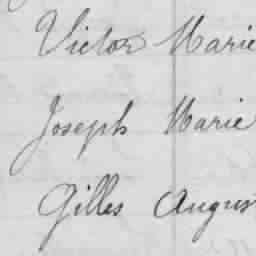 Victor Marie
Joseph Marie
Gilles Augus